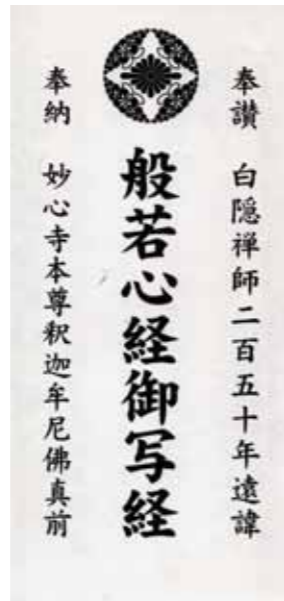 奉讃　白隠禅師二百五十年遠諱
般若心経御写経
奉納　妙心寺本尊釈迦牟尼佛真前